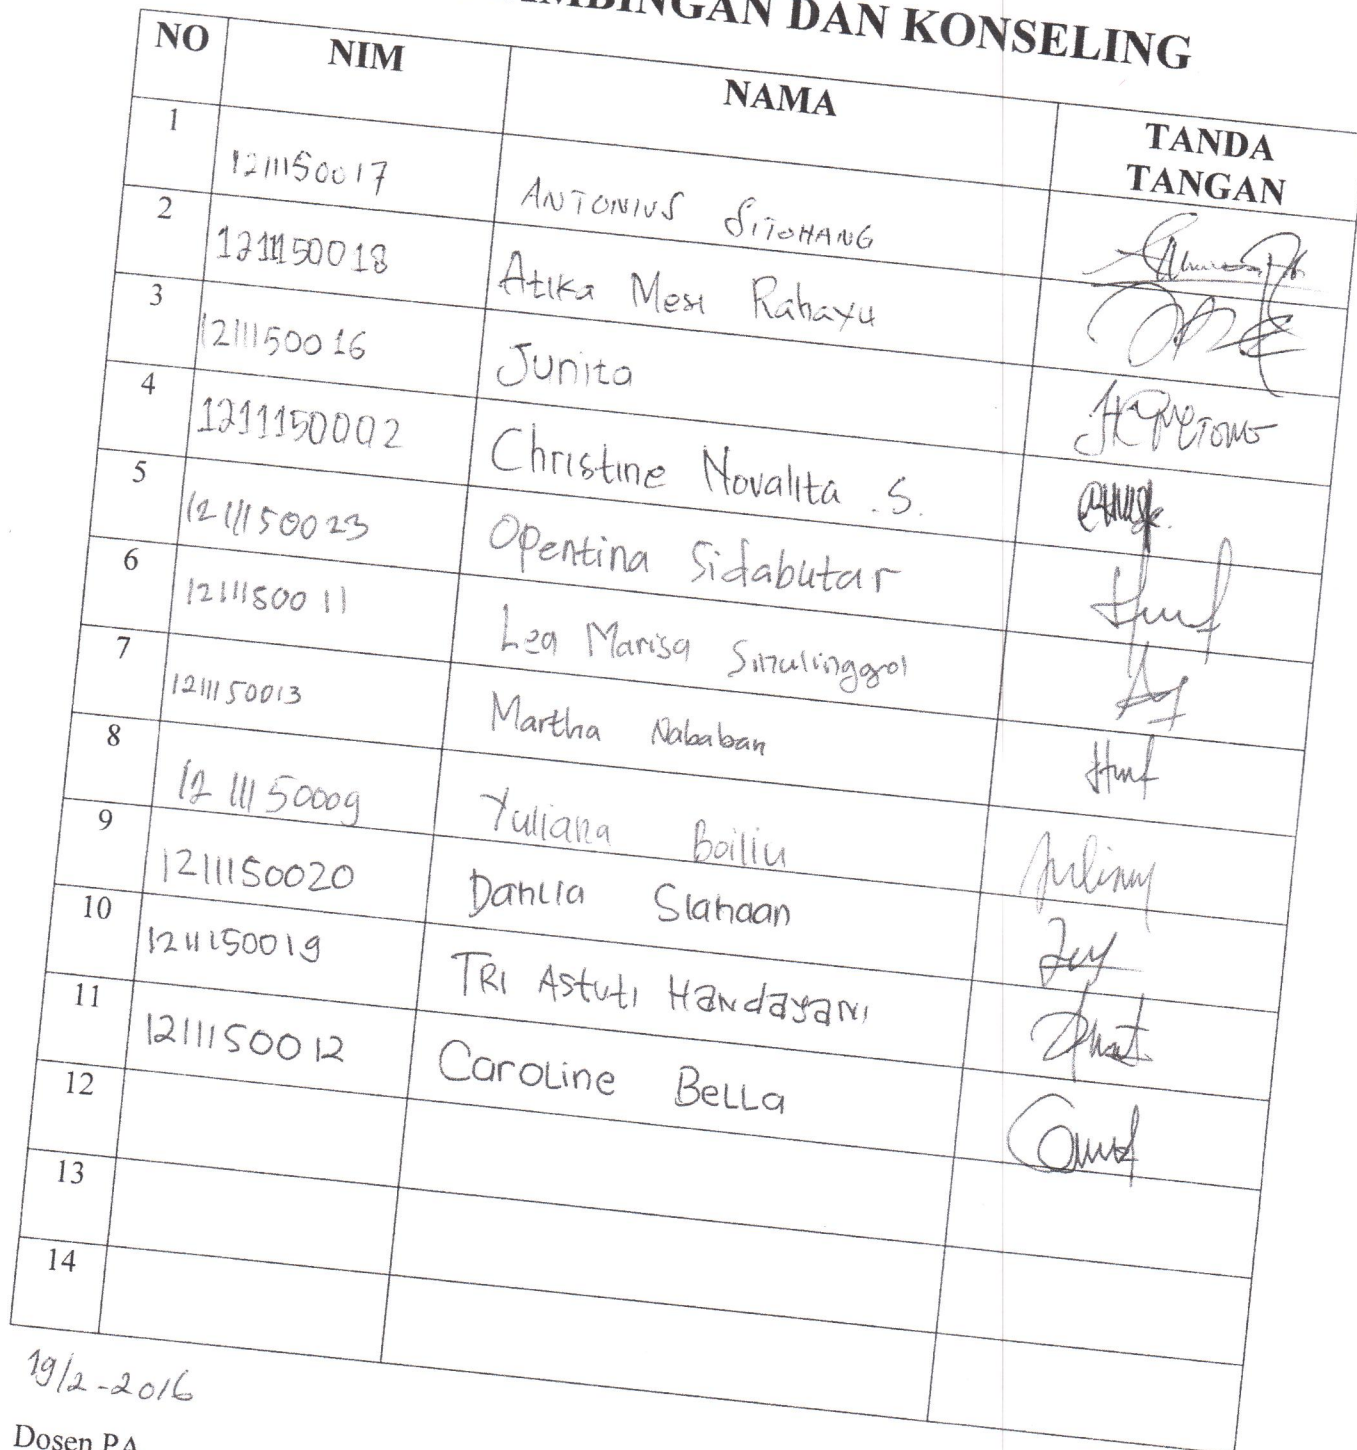 MBINGAN DAN KONSELING
NO NIM NAMA TANDA TANGAN
1 1211150017 ANTONIUS SITOHANG
2 1211150018 Atika Mesi Rahayu
3 1211150016 Junita
4 1211150002 Christine Novalita .S.
5 1211150023 Opentina Sidabutar
6 1211150011 Lea Marisa
7 1211150013 Martha Nababan
8 1211150009 Yuliana Boiliu
9 1211150020 Dahlia Siahaan
10 1211150019 TRI Astuti Handayani
11 1211150012 Caroline Bella
12
13
14
19/2-2016
Dosen PA